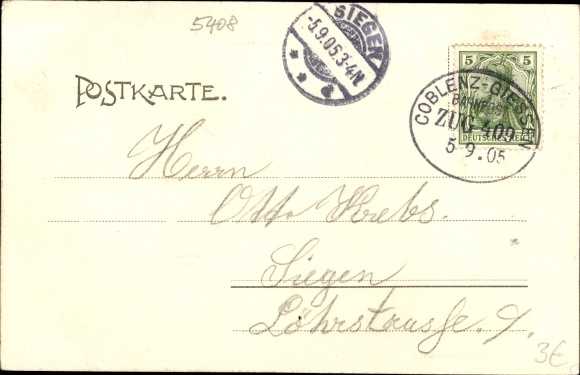 5408
SIEGEN
-5.9.05.3-4N.
* * a
5 5
DEUTSCHES REICH
COBLENZ-GIESSEN
BAHNPOST
ZUG 409
5.9.05
POSTKARTE.
Herrn
Otto Krebs.
Siegen
Löhrstrasse. 9.
3€